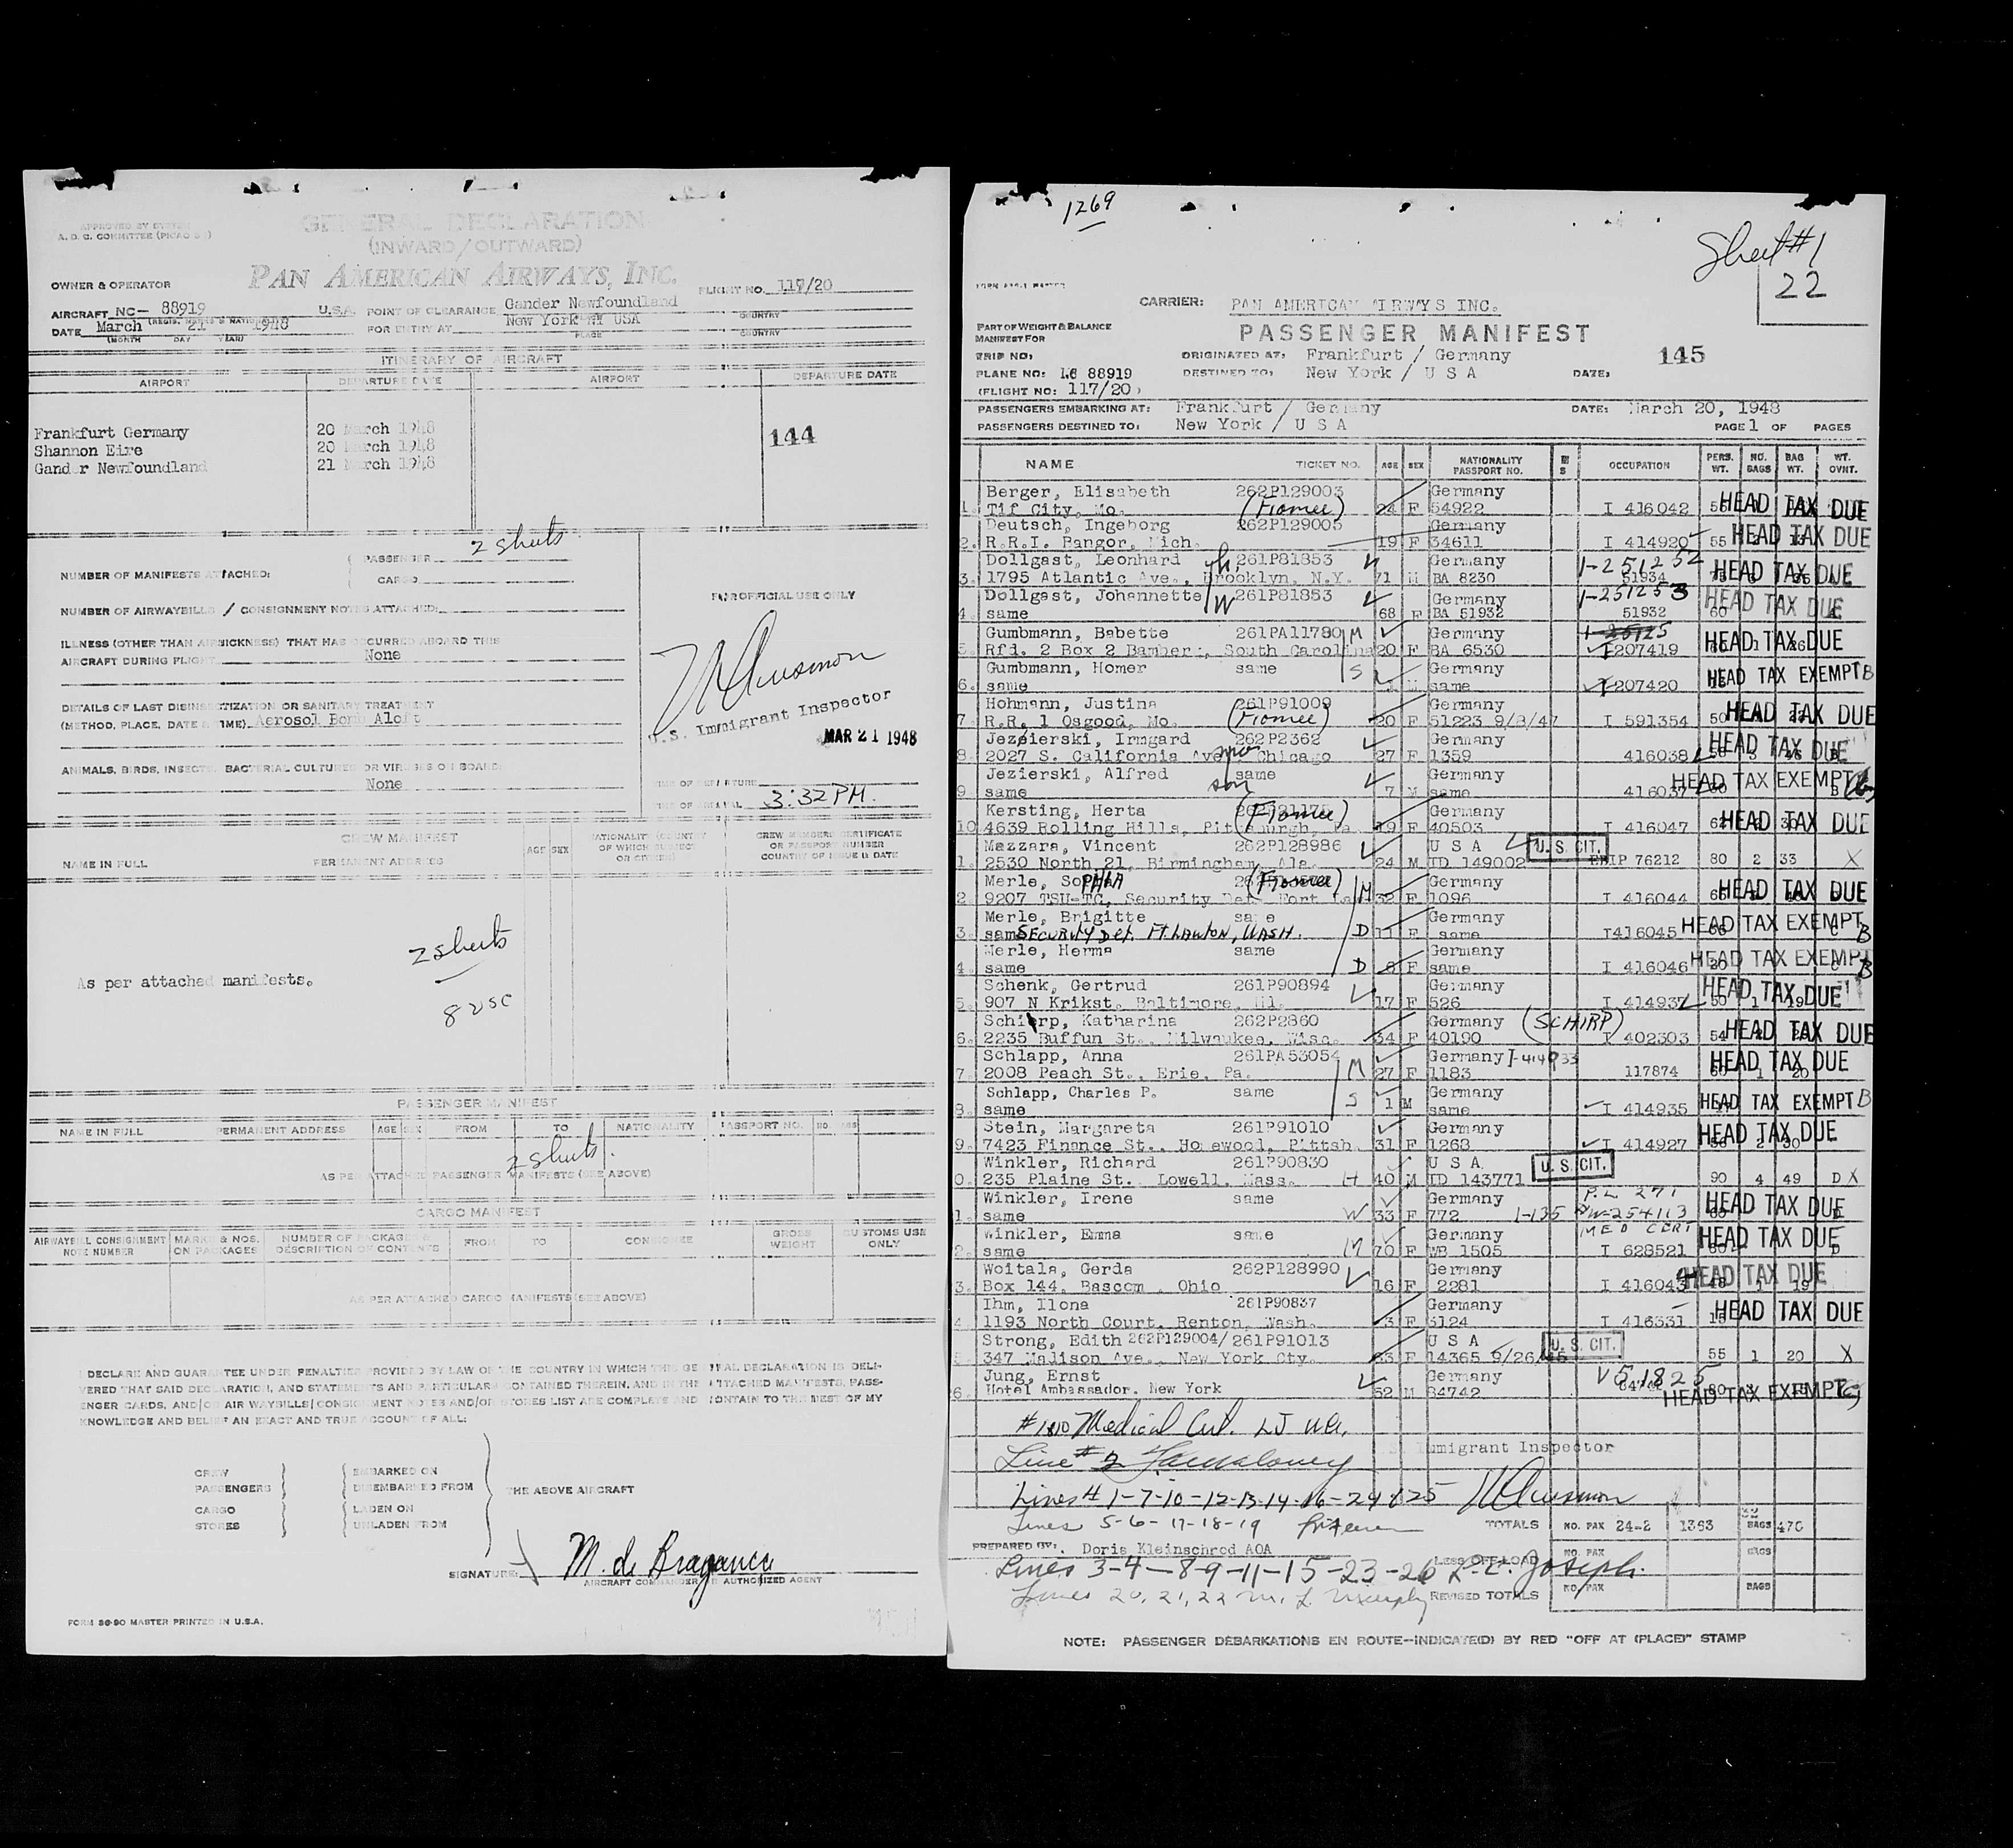 APPROVED BY
A. D. C. COMMITTEE
GENERAL DECLARATION
(INWARD/OUTWARD)
PAN AMERICAN AIRWAYS, INC.
OWNER & OPERATOR
FLIGHT NO. 117/20
AIRCRAFT NC- 88919 U.S.A. POINT OF CLEARANCE Gander Newfoundland
COUNTRY
DATE March 21 1948 FOR ENTRY AT New York NY USA
(MONTH DAY YEAR) PLACE COUNTRY
ITINERARY OF AIRCRAFT
AIRPORT DEPARTURE DATE AIRPORT DEPARTURE DATE
Frankfurt Germany 20 March 1948
144
Shannon Eire 20 March 1948
Gander Newfoundland 21 March 1948
NUMBER OF MANIFESTS ATTACHED: PASSENGER 2 sheets
CARGO
NUMBER OF AIRWAYBILLS / CONSIGNMENT NOTES ATTACHED:
FOR OFFICIAL USE ONLY
ILLNESS (OTHER THAN AIRSICKNESS) THAT HAS OCCURRED ABOARD THIS
AIRCRAFT DURING FLIGHT None
DETAILS OF LAST DISINSECTIZATION OR SANITARY TREATMENT
(METHOD, PLACE, DATE & TIME) Aerosol Bomb Aloft
U.S. Immigrant Inspector
MAR 21 1948
ANIMALS, BIRDS, INSECTS, BACTERIAL CULTURES OR VIRUSES ON BOARD:
None
TIME OF DEPARTURE
TIME OF ARRIVAL 3:32 PM.
CREW MANIFEST
NAME IN FULL PERMANENT ADDRESS AGE SEX NATIONALITY (COUNTRY OF WHICH SUBJECT OR CITIZEN) CREW MEMBERS CERTIFICATE OR PASSPORT NUMBER COUNTRY OF ISSUE & DATE
2 sheets
As per attached manifests.
8 USC
PASSENGER MANIFEST
NAME IN FULL PERMANENT ADDRESS AGE SEX FROM TO NATIONALITY PASSPORT NO. NO. BAGS
2 sheets.
AS PER ATTACHED PASSENGER MANIFESTS (SEE ABOVE)
CARGO MANIFEST
AIRWAYBILL CONSIGNMENT NOTE NUMBER MARKS & NOS. ON PACKAGES NUMBER OF PACKAGES & DESCRIPTION OF CONTENTS FROM TO CONSIGNEE GROSS WEIGHT CUSTOMS USE ONLY
AS PER ATTACHED CARGO MANIFESTS (SEE ABOVE)
I DECLARE AND GUARANTEE UNDER PENALTIES PROVIDED BY LAW OF THE COUNTRY IN WHICH THIS GENERAL DECLARATION IS DELI-
VERED THAT SAID DECLARATION, AND STATEMENTS AND PARTICULARS CONTAINED THEREIN, AND IN THE ATTACHED MANIFESTS, PASS-
ENGER CARDS, AND/OR AIR WAYBILLS/CONSIGNMENT NOTES AND/OR STORES LIST ARE COMPLETE AND CONTAIN TO THE BEST OF MY
KNOWLEDGE AND BELIEF AN EXACT AND TRUE ACCOUNT OF ALL:
CREW EMBARKED ON
PASSENGERS DISEMBARKED FROM THE ABOVE AIRCRAFT
CARGO LADEN ON
STORES UNLADEN FROM
SIGNATURE: M. de Bragance
AIRCRAFT COMMANDER OR AUTHORIZED AGENT
FORM 30-90 MASTER PRINTED IN U.S.A.
1269
Sheet #1
22
CARRIER: PAN AMERICAN AIRWAYS INC.
PART OF WEIGHT & BALANCE
MANIFEST FOR
PASSENGER MANIFEST
TRIP NO: ORIGINATED AT: Frankfurt / Germany 145
PLANE NO: 88919 DESTINED TO: New York / U S A DATE:
(FLIGHT NO: 117/20)
PASSENGERS EMBARKING AT: Frankfurt / Germany DATE: March 20, 1948
PASSENGERS DESTINED TO: New York / U S A PAGE 1 OF PAGES
NAME TICKET NO. AGE SEX NATIONALITY PASSPORT NO. M S OCCUPATION PERS. WT. NO. BAGS BAG WT. WT. OVNT.
Berger, Elisabeth 262P129003 Germany
1. Tif City, Mo. (Fiancee) 24 F 54922 I 416042 HEAD TAX DUE
Deutsch, Ingeborg 262P129005 Germany
2. R.R.I. Bangor, Mich. 19 F 34611 I 414920 55 HEAD TAX DUE
Dollgast, Leonhard 261P81853 Germany 1-251252
3. 1795 Atlantic Ave., Brooklyn, N.Y. 71 M BA 8230 51934 HEAD TAX DUE
Dollgast, Johannette W 261P81853 Germany 1-251253
4. same 68 F BA 51932 51932 60 HEAD TAX DUE
Gumbmann, Babette 261PA11780 M Germany
5. Rfd. 2 Box 2 Bamberg, South Carolina 20 F BA 6530 I 207419 HEAD TAX DUE
Gumbmann, Homer same S Germany
6. same M same I 207420 HEAD TAX EXEMPT B
Hohmann, Justina 261P91009 Germany
7. R.R. 1 Osgood, Mo. (Fiancee) 20 F 51223 9/8/47 I 591354 50 HEAD TAX DUE
Jezierski, Irmgard 262P2362 Germany
8. 2027 S. California Ave. Chicago 27 F 1359 416038 HEAD TAX DUE
Jezierski, Alfred same Germany
9. same son 7 M same 416037 HEAD TAX EXEMPT
Kersting, Herta (Fiancee) Germany
10 4639 Rolling Hills, Pittsburgh, Pa. 19 F 40503 I 416047 HEAD TAX DUE
Mazzara, Vincent 262P128986 U S A U. S. CIT.
1. 2530 North 21, Birmingham, Ala. 24 M ID 149002 76212 80 2 33 X
Merle, SoPHIA (Fiancee) M Germany
2. 9207 TSU-TC, Security Det. Fort La 32 F 1096 I 416044 HEAD TAX DUE
Merle, Brigitte same Germany
3. same SECURITY Det. Ft LAWTON, WASH. D 11 F same I416045 HEAD TAX EXEMPT B
Merle, Herma same Germany
4. same D 8 F same I 416046 HEAD TAX EXEMPT B
Schenk, Gertrud 261P90894 Germany
5. 907 N Krikst. Baltimore, Md. 17 F 526 I 414937 50 1 19 HEAD TAX DUE
Schierp, Katharina 262P2860 Germany (SCHIRP)
6. 2235 Buffun St., Milwaukee, Wisc. 34 F 40190 I 402303 54 HEAD TAX DUE
Schlapp, Anna 261PA53054 Germany I-414933
7. 2008 Peach St., Erie, Pa. M 27 F 1183 117874 HEAD TAX DUE
Schlapp, Charles P. same Germany
8. same S 1 M same I 414935 HEAD TAX EXEMPT B
Stein, Margareta 261P91010 Germany
9. 7423 Finance St., Homewood, Pittsb. 31 F 1268 I 414927 HEAD TAX DUE
Winkler, Richard 261P90830 U S A U. S. CIT.
0. 235 Plaine St. Lowell, Mass. H 40 M ID 143771 90 4 49 D X
Winkler, Irene same Germany P.L. 271
1. same W 33 F 772 1-135 HEAD TAX DUE
Winkler, Emma same Germany MED CERT
2. same M 70 F WB 1505 I 628521 HEAD TAX DUE
Woitala, Gerda 262P128990 Germany
3. Box 144, Bascom, Ohio 16 F 2281 I 416043 HEAD TAX DUE
Ihm, Ilona 261P90837 Germany
4. 1193 North Court, Renton, Wash. 3 F 3124 I 416331 HEAD TAX DUE
Strong, Edith 262P129004/261P91013 U S A U. S. CIT.
5. 347 Madison Ave., New York Cty. F 14365 9/26/ 55 1 20 X
Jung, Ernst Germany
6. Hotel Ambassador. New York 52 M 84742 HEAD TAX EXEMPT
Medical Cert.
Immigrant Inspector
Line # 2
Lines # 1-7-10-12-13-14-16-24 & 25
Lines 5-6-17-18-19
TOTALS NO. PAX 24-2 1363 BAGS 470
PREPARED BY: Doris Kleinschrod AOA
LESS OFFLOAD NO. PAX BAGS
Lines 3-4-8-9-11-15-23-26 Joseph.
Lines 20, 21, 22 M. L. Murphy
REVISED TOTALS NO. PAX BAGS
NOTE: PASSENGER DEBARKATIONS EN ROUTE-INDICATE(D) BY RED "OFF AT (PLACE)" STAMP